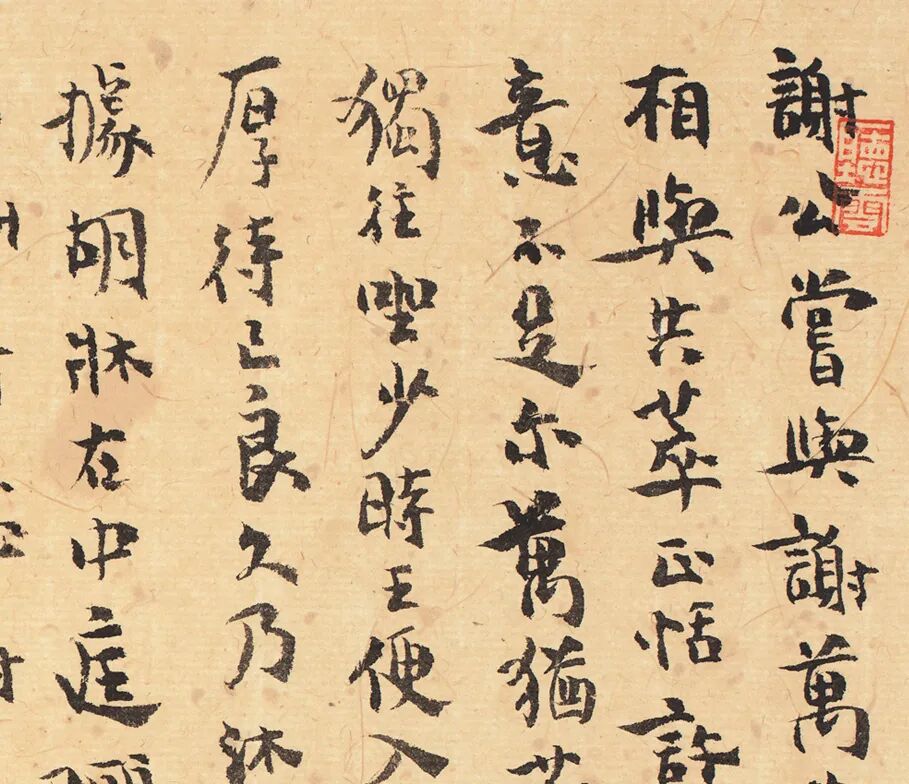 謝公嘗與謝萬
相與共萃王恬許
意不足爾萬猶
獨往坐少時王便入
厚待已良久乃沐
據胡牀在中庭